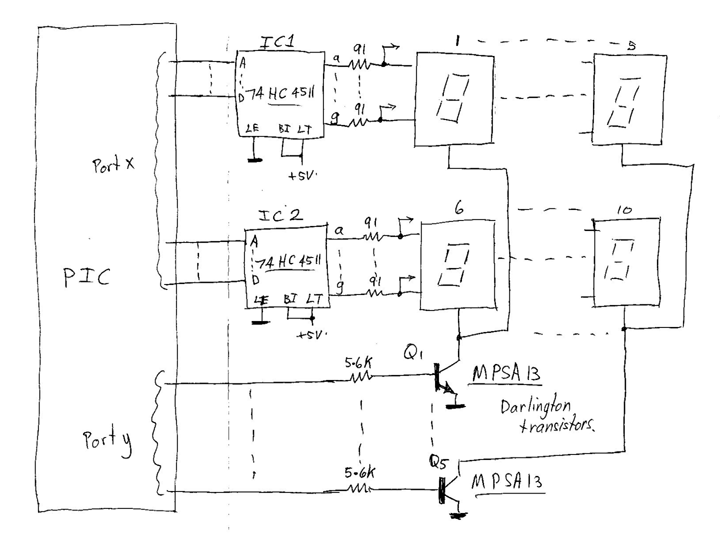 IC1
1
5
A
D
74HC4511
LE BI LT
+5V.
a
g
91
91
Port x
PIC
IC2
6
10
A
D
74HC4511
LE BI LT
+5V.
a
g
91
91
5.6K
Q1
MPSA13
Darlington
transistors.
Port y
5.6K
Q5
MPSA13